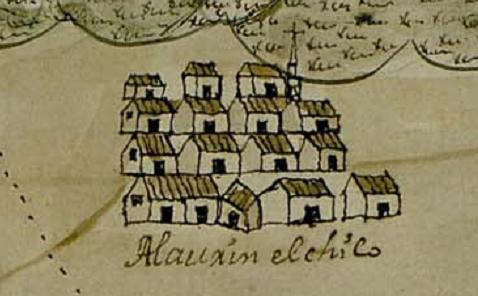 Alauxin el chico